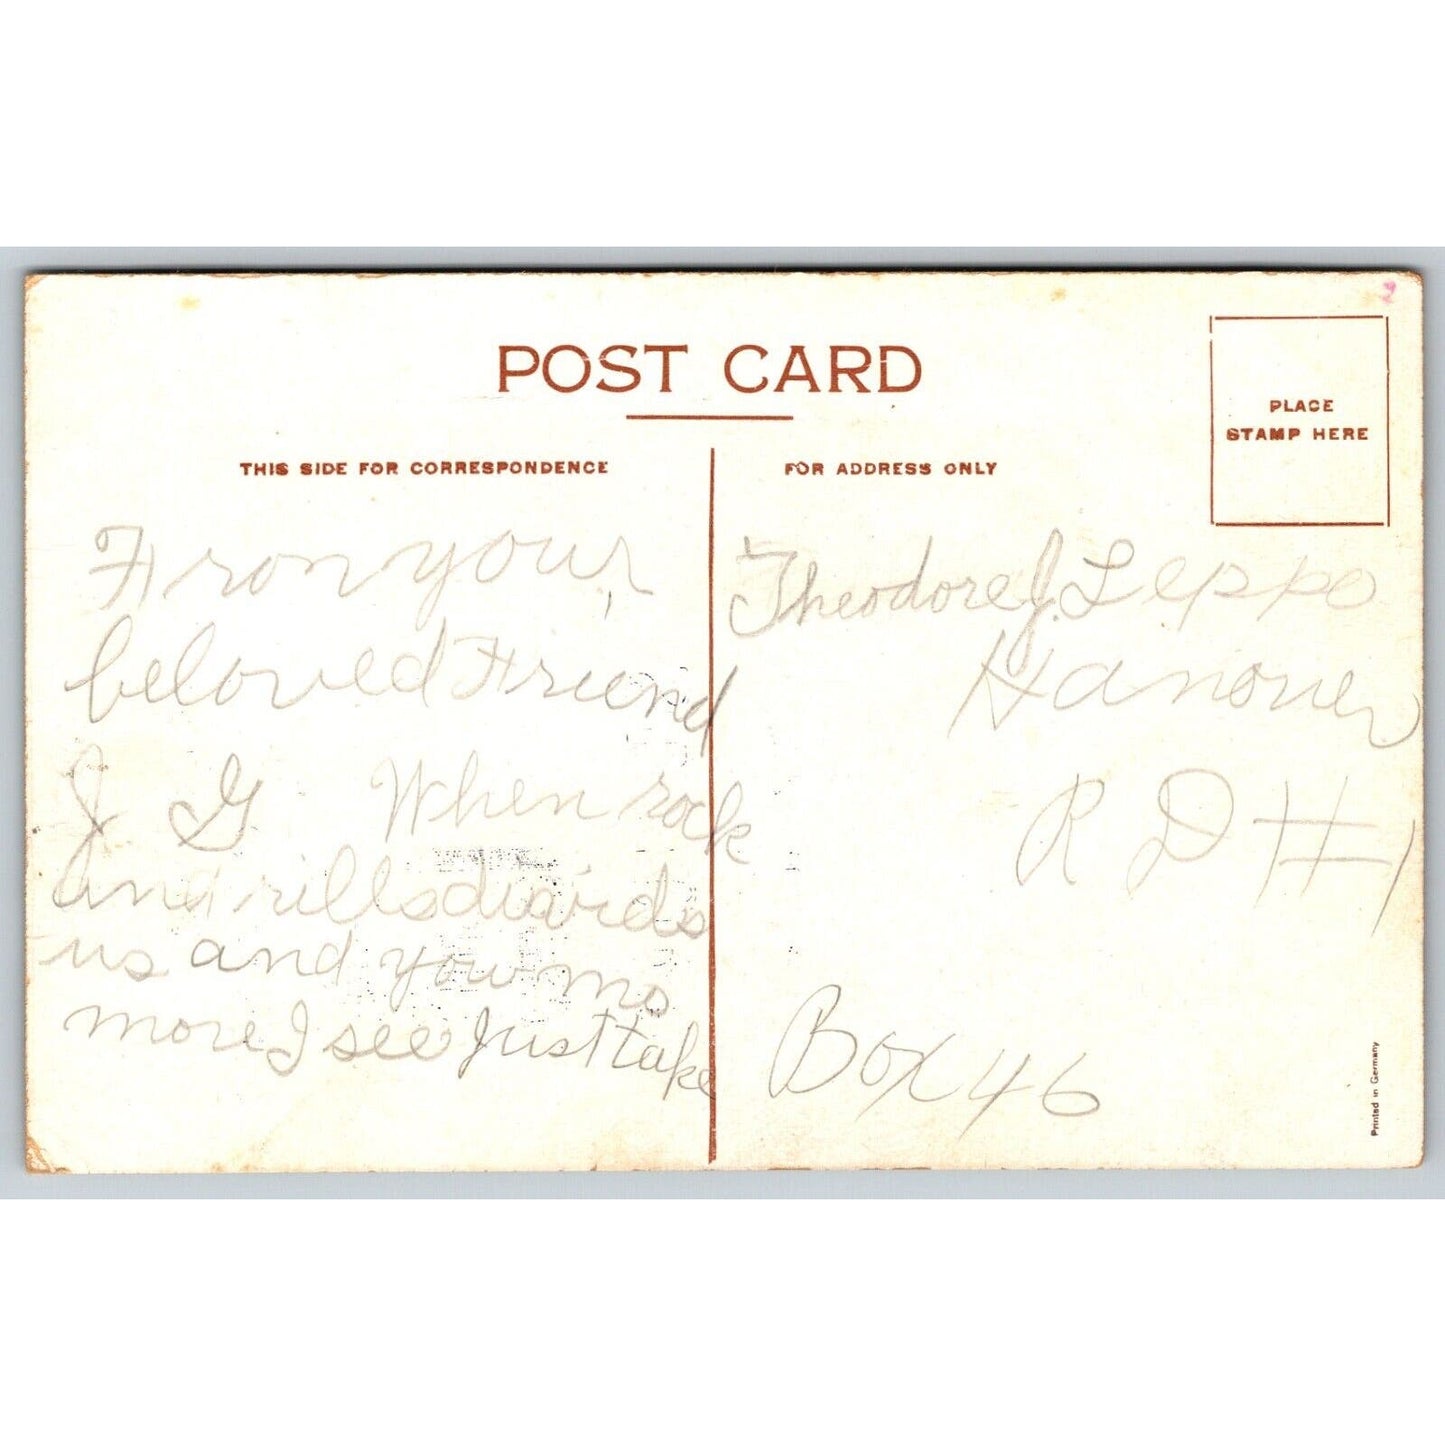 2
POST CARD
PLACE
STAMP HERE
THIS SIDE FOR CORRESPONDENCE
FOR ADDRESS ONLY
From your
beloved Friend
J G When rock
and rills
us and you no
more I see Just take
Theodore J. Leppo
Hanover
R D # 1
Box 46
Printed in Germany